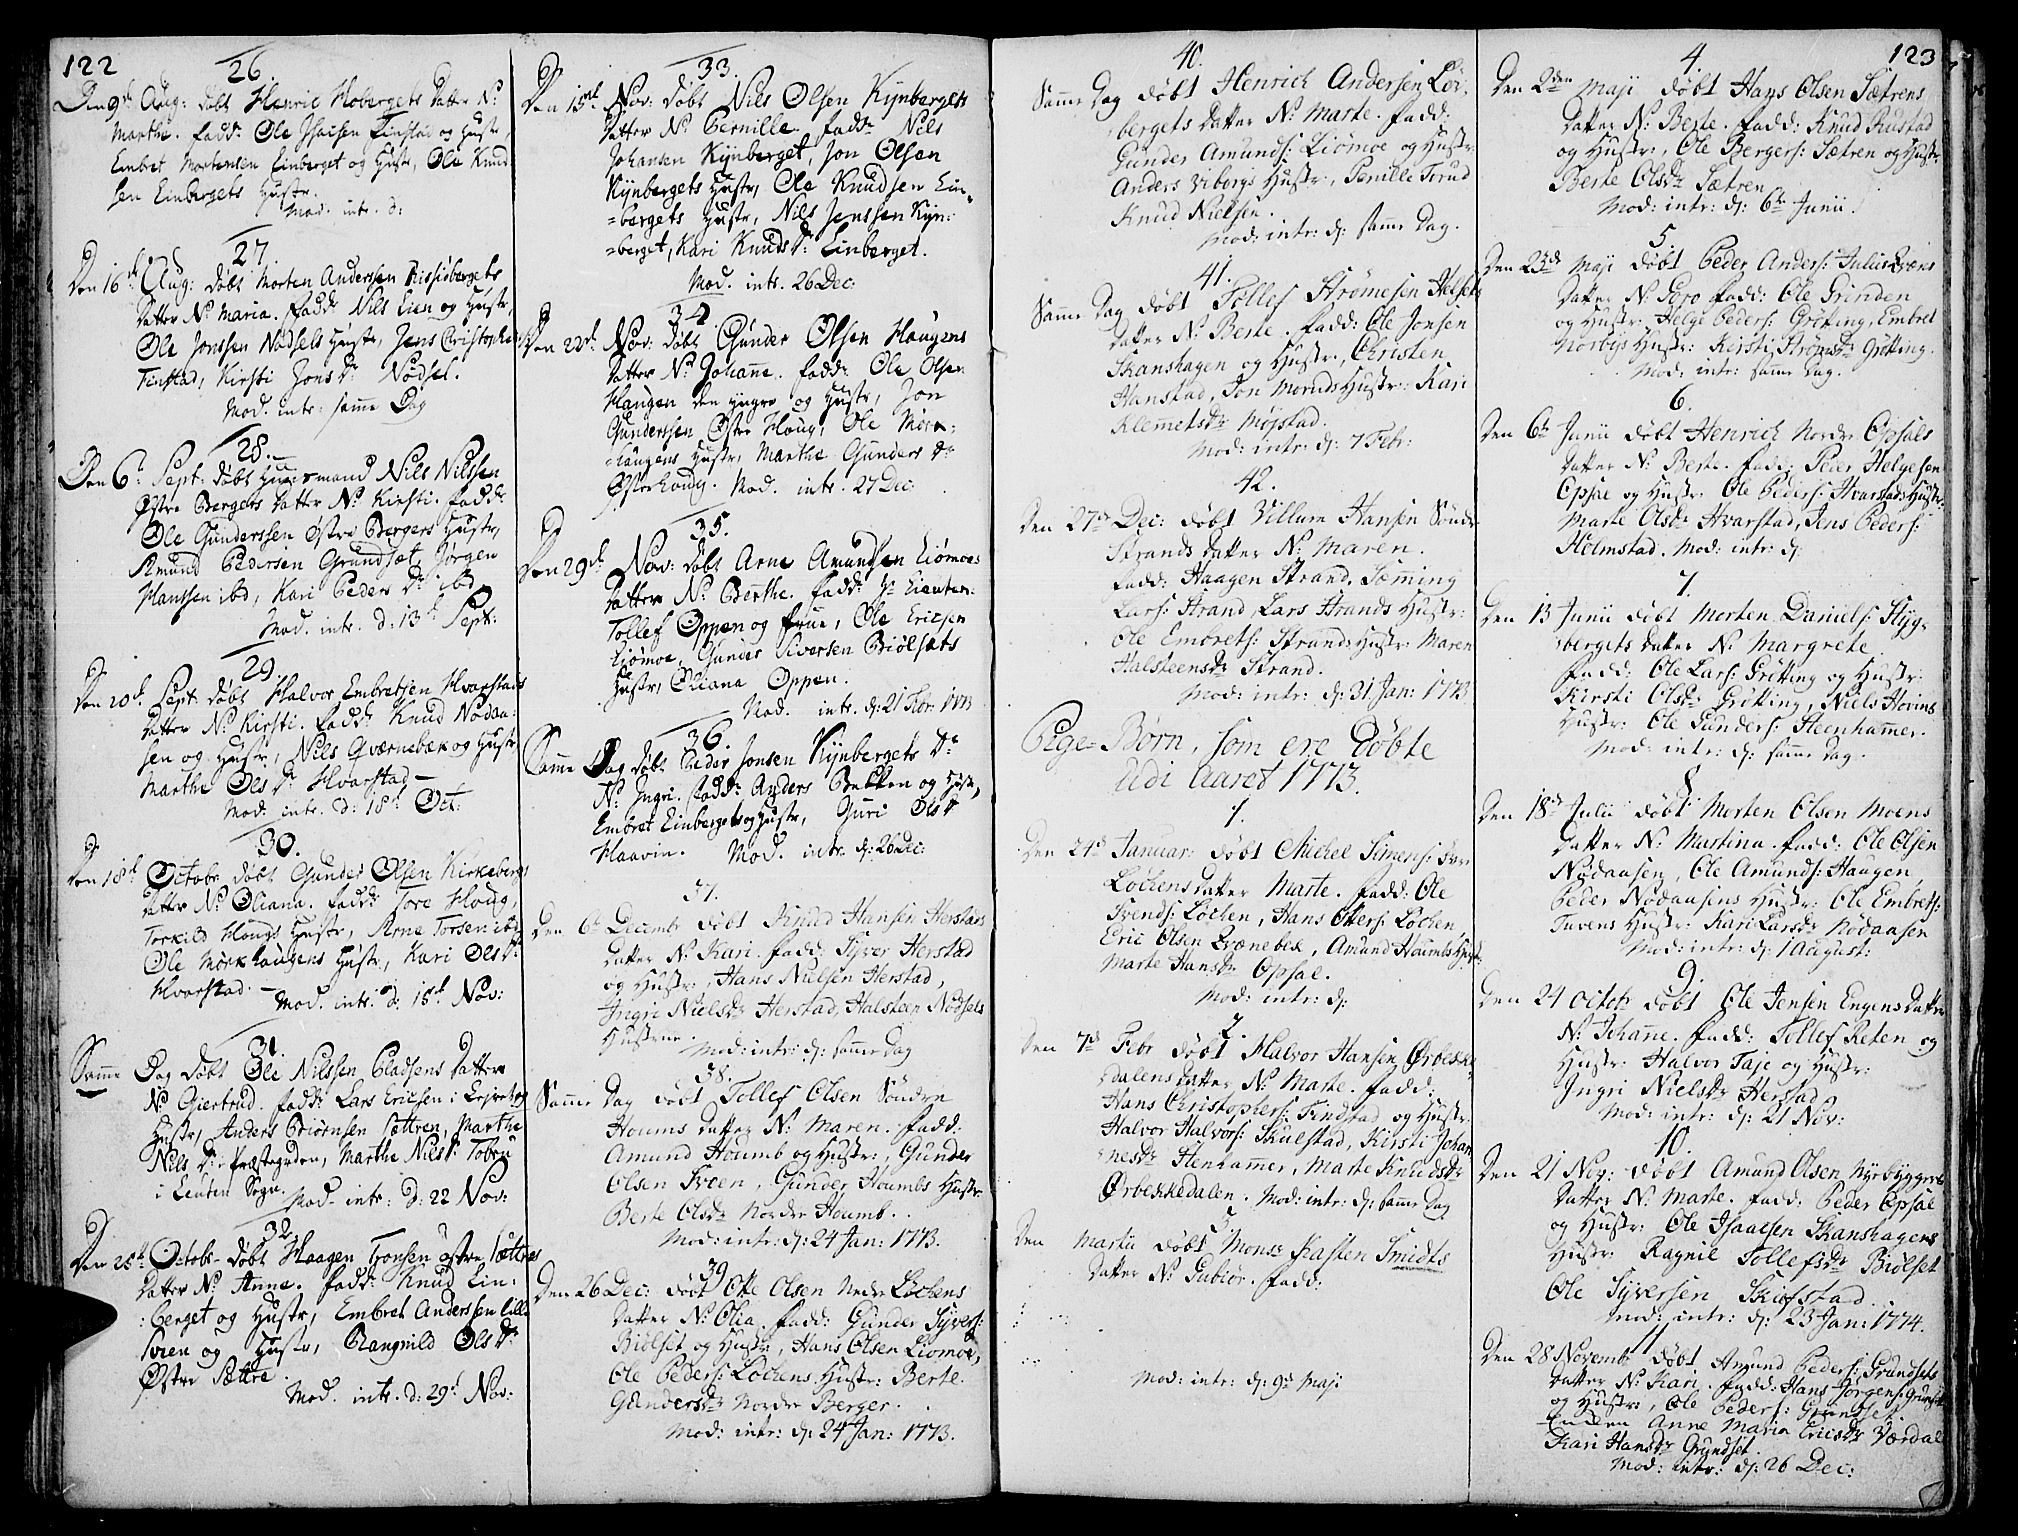 122
26.
Den 9de Aug: døbt Henric Hobergets Datter N:
Marthe. fadd: Ole Isacsen Finstad og Hustr,
Embret Mortensen Einberget og Hustr, Ole Knud
sen Einbergets Hustr.
Mod. intr. d:
27.
Den 16de Aug: døbt Morten Anderssen
Datter N: Maria. fadd: Nils Lien og Hustr,
Ole Jonssen Nødsets Hustr, Jens Christopher
Finstad, Kirsti Jons Dr Nødset.
Mod. intr: samme Dag
28.
Den 6te Sept: døbt Huusmand Nils Nilssen
Østre Bergets Datter N: Kirsti. fadd:
Ole Gunderssen Østre Bergers Hustr,
Amund Pedersen Grundsæt, Jørgen
Hanssen ibd, Kari Peders Dr ibd.
Mod. intr. d: 13de Sept:
29.
Den 20de Sept: døbt Halvor Embretsen Hvarstads
Datter N: Kirsti. fadd: Knud Nødaa-
sen og Hustr, Nils Qværnebæk og Hustr
Marthe Ols Dr Hvarstad —
Mod. intr. d: 18de Oct:
30.
Den 18de Octobr døbt Gunder Olsen Kirkebergs
Datter N: Oliana. fadd: Tore Houg,
Torkild Hougs Hustr, Arne Torsen ibd
Ole Mørkhaugens Hustr, Kari Ols Dr
Hvarstad. —
Mod. intr. d: 15de Nov:
31.
Samme Dag døbt Ole Nilssen Pladsens Datter
N: Giertrud. fadd: Lars Ericsen i Lejret og
Hustr, Anders Biørnsen Sættren, Marthe
Nils Dr Præstegrden, Marthe Nils Dr
i Leuten Sogn.
Mod. intr: d: 22 Nov:
32.
Den 25de Octobr døbt Haagen Jonsen Østre Sættres
Datter N: Anne. fadd: Knud Ein-
berget og Hustr, Embret Anderssen Lille
Svien og Hustr, Rangnild Ols Dr
Østre Sættre.
Mod. intr. d: 29de Nov:
33.
Den 15de Nov: døbt Nils Olsen Kynbergets
Datter N: Pernille. fadd: Nils
Johansen Kynberget, Jon Olsen
Kynbergets Hustr, Ole Knudsen Ein-
=bergets Hustr, Nils Jenssen Kyn:
=berget, Kari Knuds Dr Einberget.
Mod. intr. 26 Dec:
34.
Den 22de Nov: døbt Gunder Olsen Haugens
Datter N: Johanne. fadd: Ole Olsen
Haugen den yngre og Hustr, Jon
Gunderssen Østre Houg, Ole Mørk-
haugens Hustr, Marthe Gunders Dr
Østerhoug. Mod. intr. 27 Dec:
35.
Den 29de Nov: døbt Arne Amundsen Liømoes
Datter N: Berthe. fadd: Hr Lieuten:
Tollef Oppen og frue, Ole Ericsen
Liømoe, Gunder Siversen Biølsets
Hustr, Oliana Oppen.
Mod. intr. d: 21 Febr: 1773
36.
Samme Dag døbt Peder Jonsen Kynbergets Dr
N: Ingri. fadd: Anders Bekken og Hustr,
Embret Einbergets og Hustr, Guri Ols Dr
Haavin. Mod. intr. d: 26 Dec:
37.
Den 6te Decembr døbt Knud Hansen Herstads
Datter N: Kari. fadd: Syver Herstad
og Hustr:, Hans Nielsen Herstad,
Ingri Nielsdr Herstad, Halsteen Nødsets
Hustrue.
Mod: intr: d: samme Dag
38.
Samme Dag døbt Tollef Olsen Søndre
Houms Datter N: Maren. fadd:
Amund Houmb og Hustr:, Gunder
Olsen Sveen, Gunder Houmbs Hustr
Berte Olsdr Nordre Houmb.
Mod: intr: d: 24 Jan: 1773.
39
Den 26 Dec: døbt Otte Olsen Nedre Løckens
Datter N: Olia. fadd: Gunder Syvers:
Biølset og Hustr:, Hans Olsen Liømoe,
Ole Peders: Løckens Hustr: Berte
Gundersdr Nordre Berger.
Mod: intr: d: 24 Jan: 1773.
40.
Samme Dag døbt Henrich Andersen Lør-
bergets Datter N: Marte. fadd:
Gunder Amunds: Liømoe og Hustr:
Anders Viborgs Hustr:, Pernille Torud
Knud Nielsen.
Mod: intr: d: samme Dag.
41.
Samme Dag døbt Tollef Strømesen Halsets
Datter N: Berte. fadd: Ole Jonsen
Skanshagen og Hustr:, Christen
Hanstad, Jon Morends Hustr: Kari
Klemetsdr Møjstad.
Mod: intr: d: 7 Febr:
42.
Den 27de Dec: døbt Villum Hansen Søndr
Strands Datter N: Maren.
fadd: Haagen Strand, Sæming
Lars: Strand, Lars Strands Hustr:
Ole Embrets: Strands Hustr: Maren
Halsteensdr Strand.
Mod: intr: d: 31 Jan: 1773
Pige-Børn, som ere Døbte
Udi Aaret 1773.
1.
Den 24de Januar: døbt Michel Simens:
Løckens Datter Marte. fadd: Ole
Svends: Løcken, Hans Otters: Løcken,
Eric Olsen Qvænebek, Amund Houmbs Hustr:
Marte Hansdr Opsal.
Mod: intr: d:
2.
Den 7de Febr døbt Halvor Hansen Ørbekke-
dalens Datter N: Marte. fadd:
Hans Christophers: Findstad og Hustr:
Halvor Halvors: Skulstad, Kirsti Johan
nesdr Stenhammer, Marte Knudsdr
Ørbekkedalen. Mod: intr: d: samme Dag
3
Den Martii døbt Monsr Karsten Smidts
Datter N: Gubiør. fadd:
Mod: intr: d: 9de Maji
123
4.
Den 2den Maji døbt Hans Olsen Sætrens
Datter N: Berte. fadd: Knud Rustad
og Hustr:, Ole Bergers: Sætren og Hustr:
Berte Olsdr Sætren
Mod: intr: d: 6te Junii.
5.
Den 23de Maji døbt Peder Anders: Julusqvæns
Datter N: Goro fadd: Ole Grinden
og Hustr: Helge Peders: Grøtting, Embret
Norbys Hustr: Kirsti Strømsdr Grøtting.
Mod: intr: samme Dag.
6.
Den 6te Junii døbt Henrich Nordre Opsals
Datter N: Berte. fadd: Peder Helgesen
Opsal og Hustr: Ole Peders: Hvarstads Hustr:
Marte Olsdr Hvarstad, Jens Peders:
Holmstad. Mod: intr: d:
7.
Den 13 Junii døbt Morten Daniels: Styg-
bergets Datter N: Margrete.
fadd: Ole Lars: Grøtting og Hustr:
Kirsti Olsdr Grøtting, Niels Hovins
Hustr: Ole Gunders: Steenhammer.
Mod: intr: d: samme Dag.
8
Den 18de Julii døbt Morten Olsen Moens
Datter N: Martina. fadd: Ole Olsen
Nødaasen, Ole Amunds: Haugen,
Peder Nødaasens Hustr: Ole Embrets:
Tuvens Hustr: Kari Larsdr Nødaasen
Mod: intr: d: 1 August:
9.
Den 24 Octob: døbt Ole Jensen Engens Datter
N: Johanne. fadd: Tollef Reten og
Hustr: Halvor Taje og Hustr:
Ingri Nielsdr Herstad.
Mod: intr: d: 21 Nov:
10.
Den 21 Nov: døbt Amund Olsen Nyebyggers
Datter N: Marte. fadd: Peder Opsal
og Hustr: Ole Isaacsen Skanshagens
Hustr: Ragnil Tollefsdr Biølset
Ole Syversen Skufstad.
Mod: intr: d: 23 Jan: 1774.
11
Den 28 Novembr døbt Amund Peders: Grundsets
Datter N: Kari. fadd: Hans Jørgens: Grundset
og Hustr:, Ole Peders: Grundset.
Anne Maria Ericsdr Værdal
Kari Hansdr Grundset.
Mod: intr: d: 26 Dec: